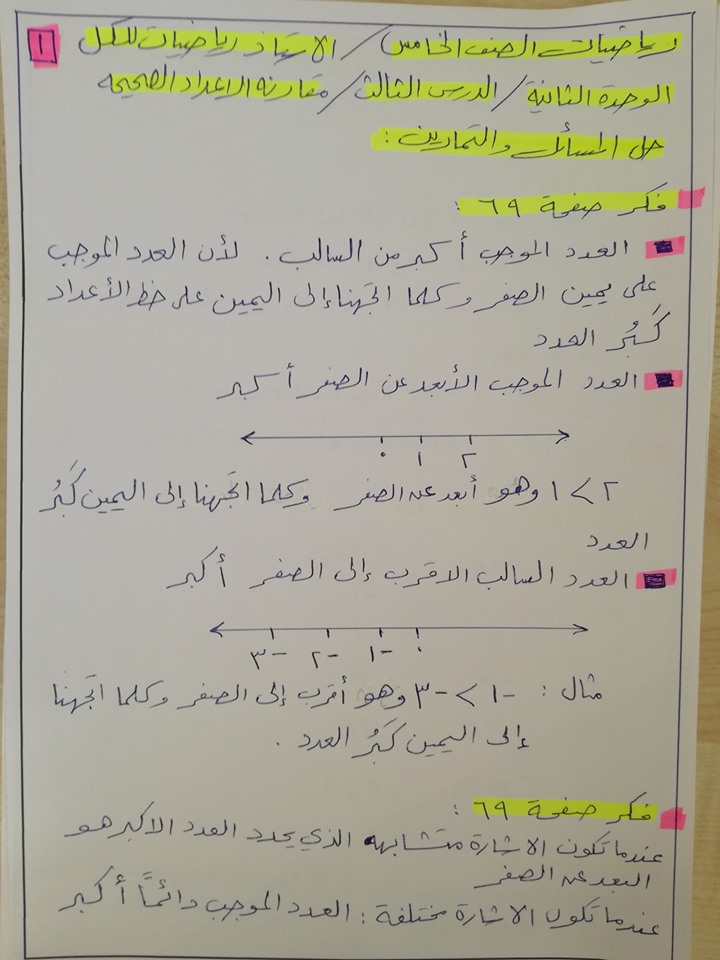 رياضيات الصف الخامس / الاستاذ رياضيات للكل ١
الوحدة الثانية / الدرس الثالث / مقارنه الاعداد الصحيحه
حل المسائل والتمارين :
فكر صفحة ٦٩ :
العدد الموجب أكبر من السالب . لأن العدد الموجب
على يمين الصفر وكلما اتجهنا إلى اليمين على خط الأعداد
كَبُر العدد
العدد الموجب الأبعد عن الصفر أكبر
٠ ١ ٢
٢ > ١ وهو أبعد عن الصفر وكلما اتجهنا إلى اليمين كَبُر
العدد
العدد السالب الاقرب إلى الصفر أكبر
-٣ -٢ -١ ٠
مثال : -١ > -٣ وهو أقرب إلى الصفر وكلما اتجهنا
إلى اليمين كَبُر العدد .
فكر صفحة ٦٩ :
عندما تكون الاشارة متشابهه الذي يحدد العدد الاكبر هو
البعد عن الصفر
عندما تكون الاشارة مختلفة : العدد الموجب دائماً أكبر